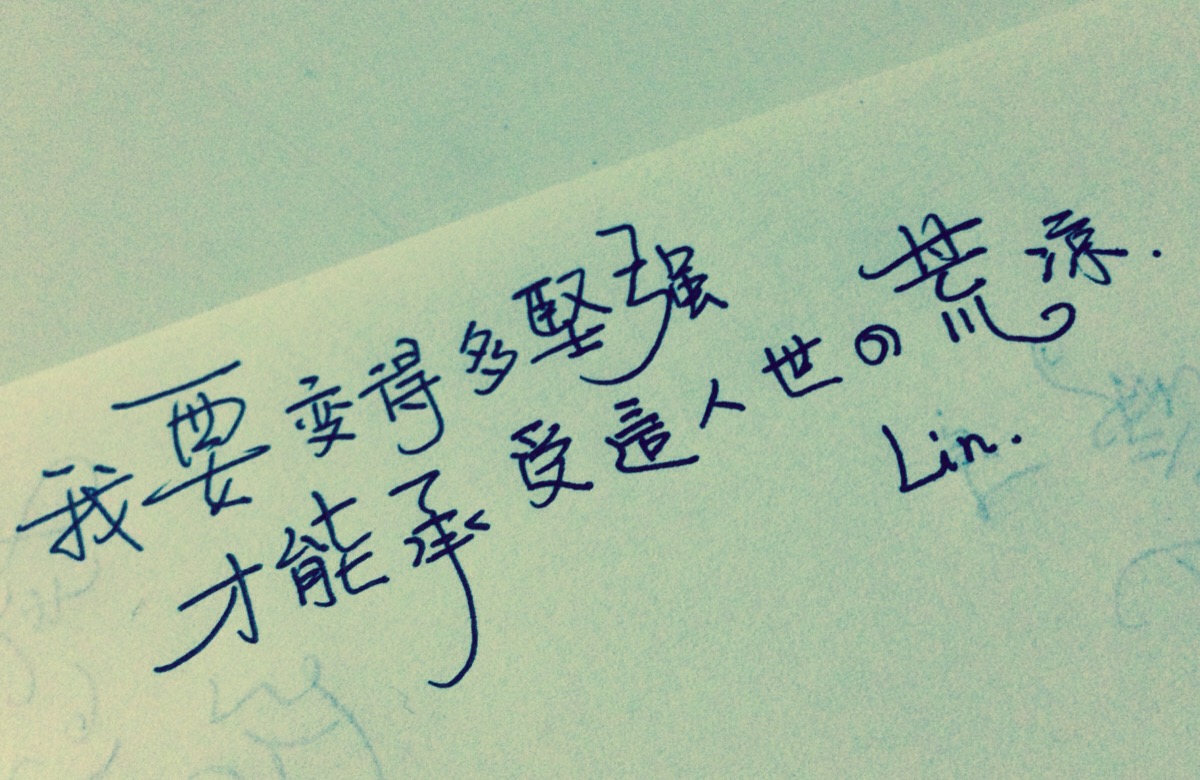 我要变得多堅强
才能承受這人世の荒涼.
Lin.